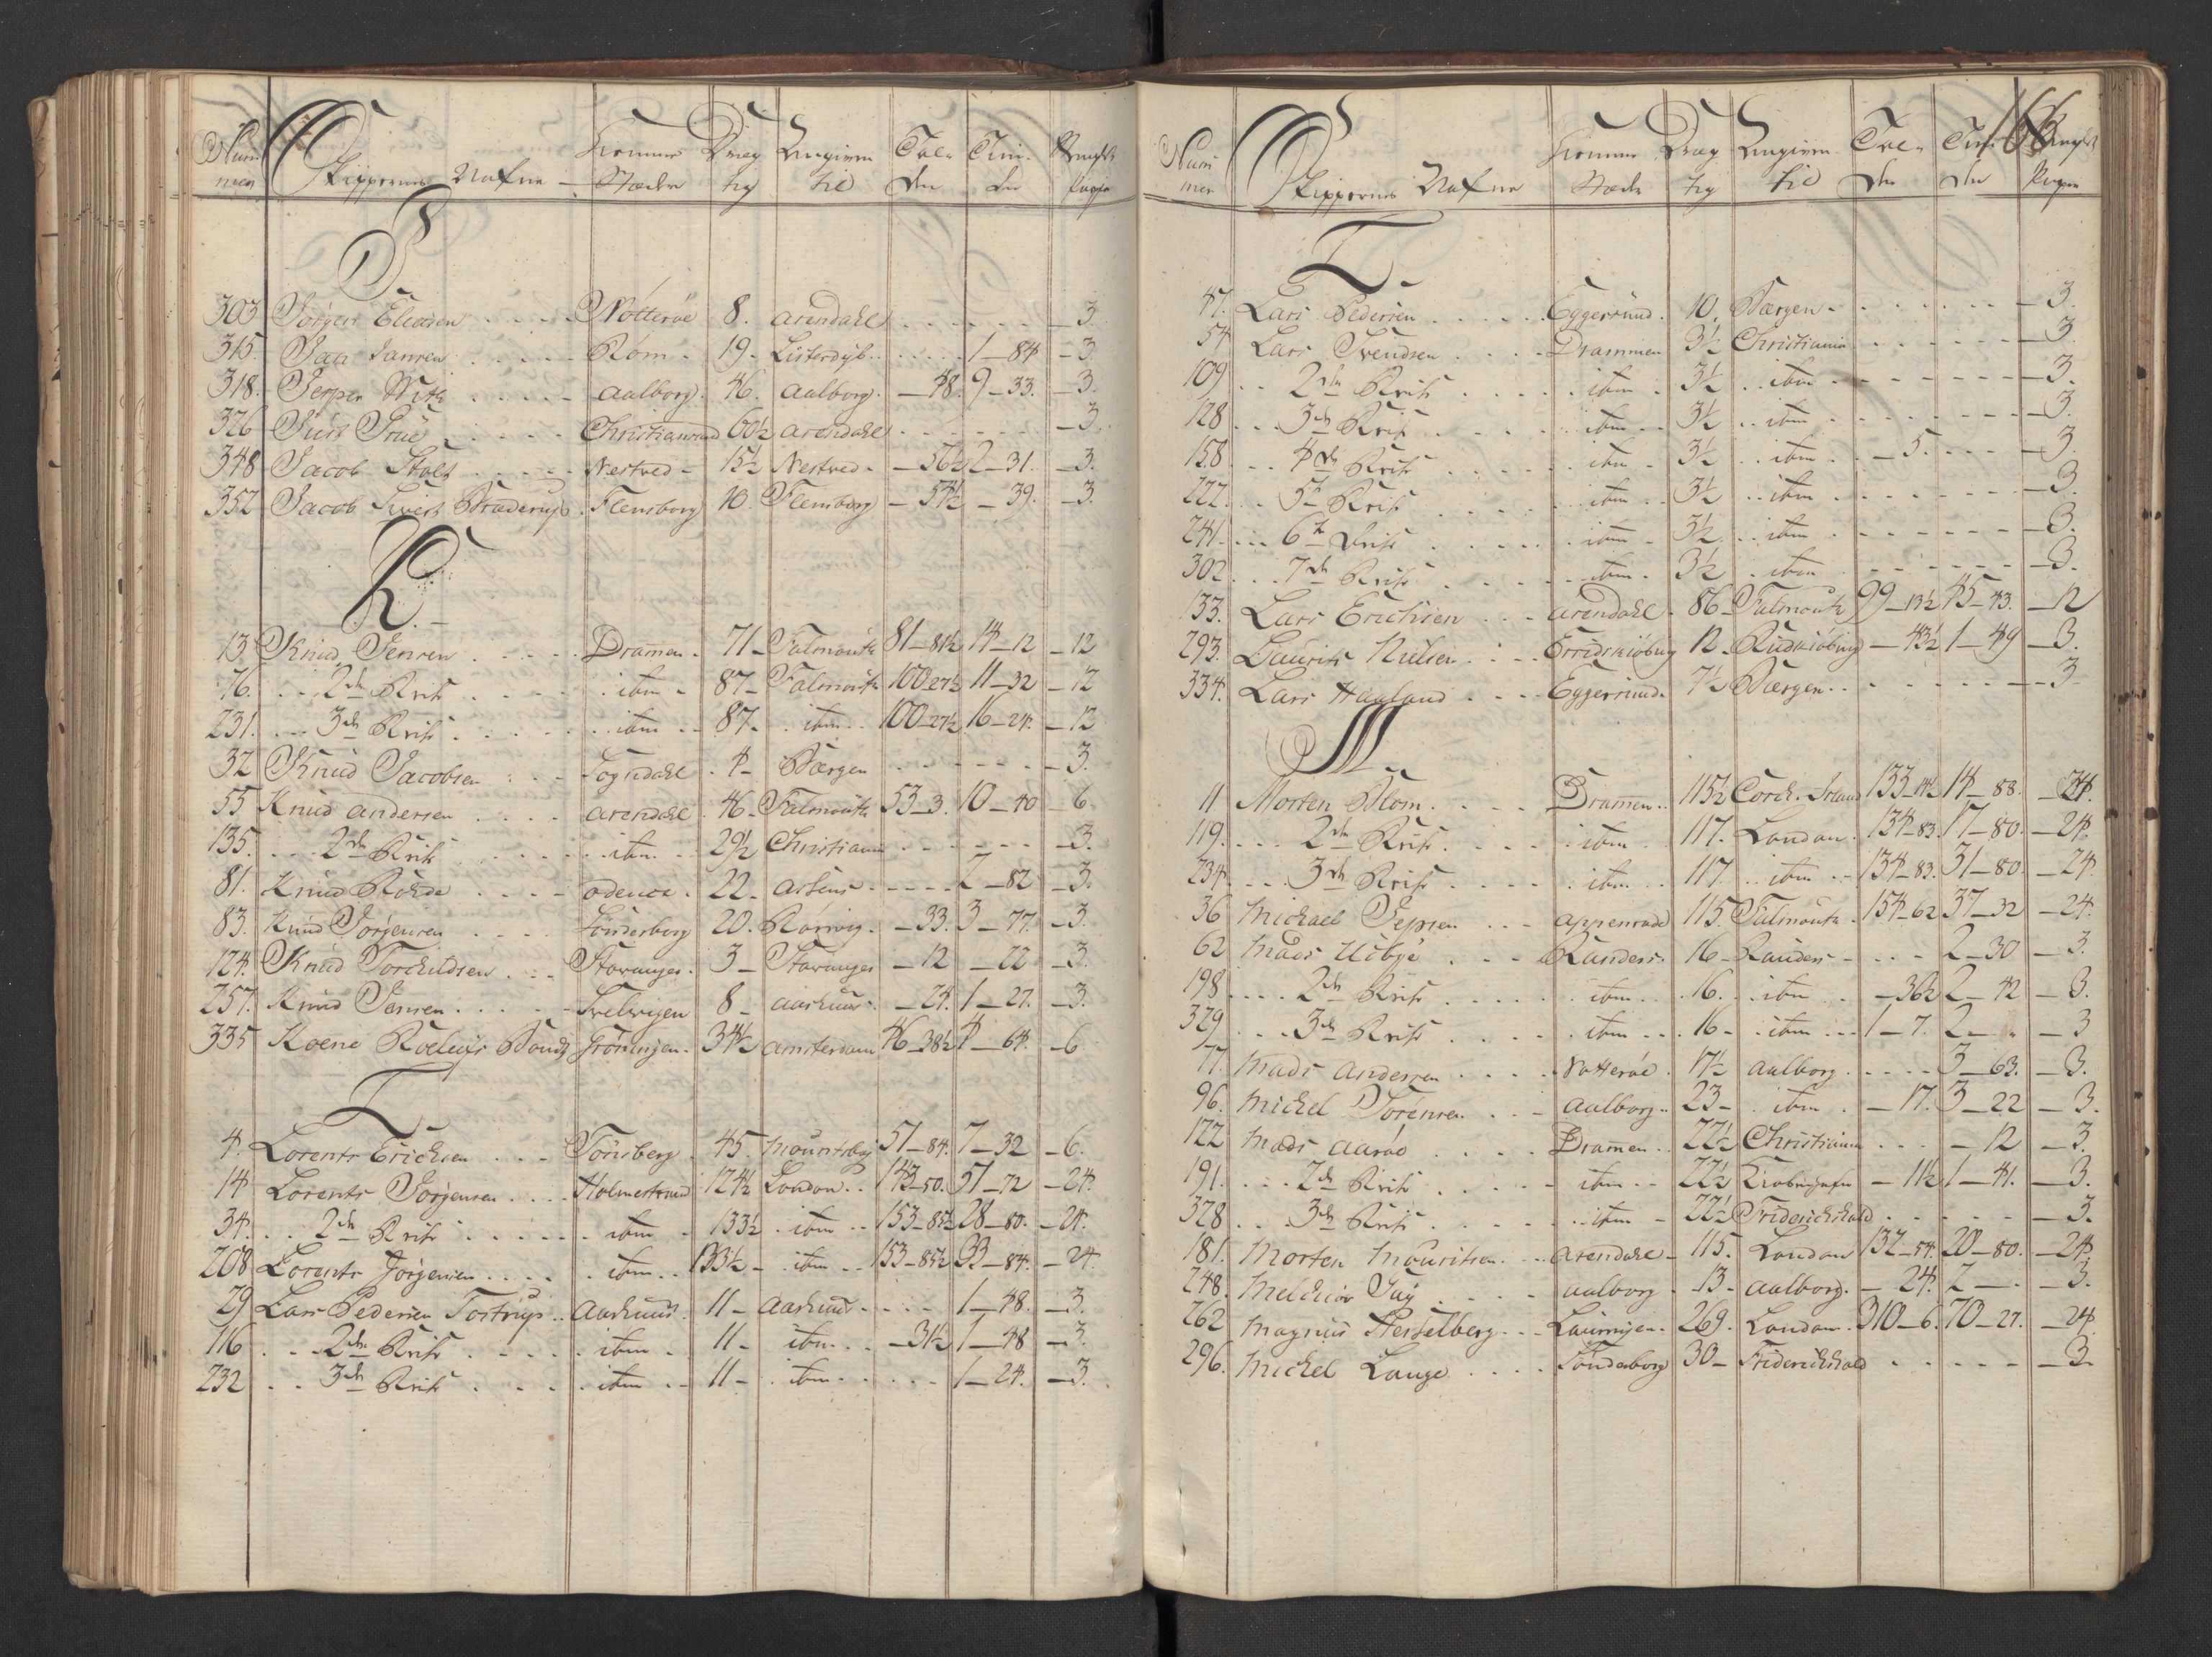 Num Skippernes Nafne Hiemme Dræg Angiven Tol-
mer Stæder tig til den den
J.
303 Jörgen Eliasen Nötteröe 8. Arendahl 3.
315. Jan Jansen Röm 19. Listerdÿb 1_84 3.
318. Jesper With Aalborg 46. Aalborg. 48. 9_33. 3.
326 Just Friis Christiansund 60½ Arendahl 3.
348 Jacob Stoltz Nestved 15½ Nestved 56½ 2_31. 3.
352 Jacob Sivers Braderup Flensborg 10. Flensborg 54½ 39. 3
K.
13 Knud Jensen Dramen 71 Falmouth 81_81½ 14_12 12
76. 2de Reise ibm 87 Falmouth 100_27½ 11_32 12
231. 3de Reise ibm 87 ibm 100_27½ 16_24. 12
32 Knud Jacobsen Sogndahl 4 Bergen 3.
55 Knud Andersen Arendahl 46 Falmouth 53_3. 10_40 6.
135. 2de Reise ibm 29½ Christiania 3.
81. Knud Rohde Odensee 22. Assens 2_82 3.
83. Knud Jörgensen Sönderborg 20. Rörvig 33. 3_77. 3.
124. Knud Torchildsen Stavanger 3 Stavanger 12 22 3.
257. Knud Jensen Svelvigen 8 Aarhuus 24. 1_27. 3.
335 Koene Roelufs Bondt Gröningen 34½ Amsterdam 46_38½ 4_64. 6
L
4. Lorents Erichsen Tönsberg 45. 51_84. 7_32 6.
14 Lorents Jörgensen Holmestrand 124½ London 143_50. 51_72 24.
34. 2de Reise ibm 133½ ibm 153_85½ 28_80. 24.
208 Lorents Jörgensen ibm 133½ ibm 153_85½ 33_84. 24.
29 Lars Pedersen Tostrup Aarhuus 11 Aarhuus 1_48. 3.
116 2de Reise ibm 11 ibm 31½ 1_48 3.
232 3de Reise ibm 11 ibm 1_24. 3.
166
Num Skippernes Nafne Hiemme Dræg Angiven Tol-
mer Stæder tig til den den
L.
47. Lars Pedersen Eggersund 10. Bergen 3.
54 Lars Svendsen Drammen 3½ Christiania 3.
109 2de Reise ibm 3½ ibm 3.
128 3de Reise ibm 3½ ibm 3.
158 4de Reise ibm 3½ ibm 5. 3.
222 5te Reise ibm 3½ ibm 3.
241 6te Reise ibm 3½ ibm 3.
302 7de Reise ibm 3½ ibm 3.
133. Lars Erichsen Arendahl 86 Falmouth 99_13½ 45_43. 12
293. Laurits Nielsen Erröeskiöbing 12 Rudkiöbing 43½ 1_49 3.
334. Lars Haaland Eggersund 7½ Bergen 3
M.
11. Morten Blom Dramen 115½ Corck. Irland 133_14½ 14_88. 24.
119. 2de Reise ibm 117. London 134_83. 17_80. 24.
234. 3de Reise ibm 117. ibm 134_83. 31_80. 24
36 Michael Jepsen Appenrade 115. Falmouth 154_62 37_32 24.
62 Mads Udbÿe Randers 16 Randers 2_30 3.
198 2de Reise ibm 16. ibm 36½ 2_42 3.
329 3de Reise ibm 16 ibm 1_7. 2_ 3
77. Mads Andersen Nötteröe 17½ Aalborg 3_63. 3.
96. Michel Sörensen Aalborg 23 ibm 17. 3_22 3.
122 Mads Aaröe Dramen 22½ Christiania 12 3.
191. 2de Reise ibm 22½ Kiöbenhafn 11½ 1_41. 3.
328 3de Reise ibm 22½ Friderichshald 3.
181. Morten Mouritsen Arendahl 115. London 132_54. 20_80. 24.
248. Melchior Aalborg 13 Aalborg 24. 2_ 3.
262 Magnus Hesselberg Laurvigen 269. London 310_6. 70_27. 24
296. Michel Lange Sönderborg 30 Friderichshald 3.